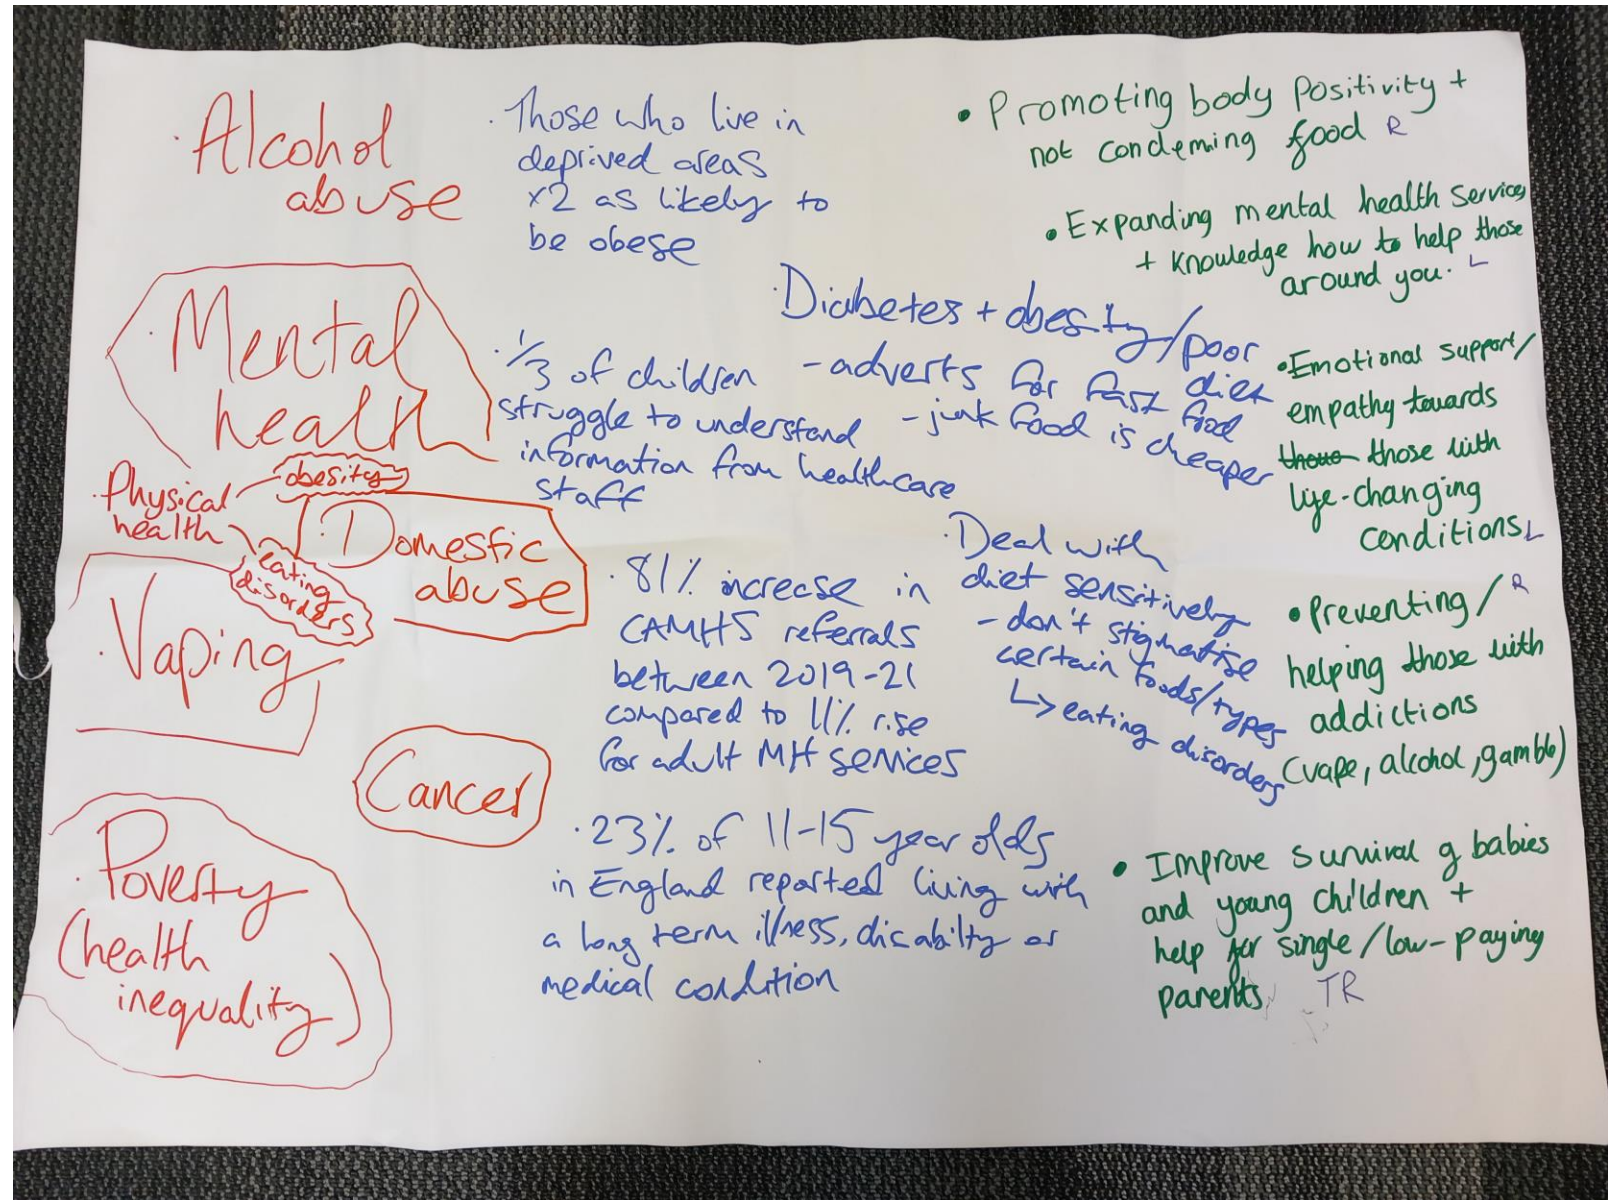 · Alcohol
abuse
· Mental
health
· Physical
health
obesity
eating
disorders
Domestic
abuse
· Vaping
Cancer
· Poverty
(health
inequality)
· Those who live in
deprived areas
x2 as likely to
be obese
· 1/3 of children
struggle to understand
information from healthcare
staff
· Diabetes + obesity/poor
diet
- adverts for fast food
- junk food is cheaper
· 81% increase in
CAMHS referrals
between 2019-21
compared to 11% rise
for adult MH services
· Deal with
diet sensitively
- don't stigmatise
certain foods/types
↳ eating disorders
· 23% of 11-15 year olds
in England reported living with
a long term illness, disabilty or
medical condition
• Promoting body positivity +
not condeming food R
• Expanding mental health services
+ knowledge how to help those
around you. L
• Emotional support/
empathy towards
those with
life-changing
conditions L
• Preventing/ R
helping those with
addictions
(vape, alcohol, gamble)
• Improve survival of babies
and young children +
help for single/low-paying
parents TR